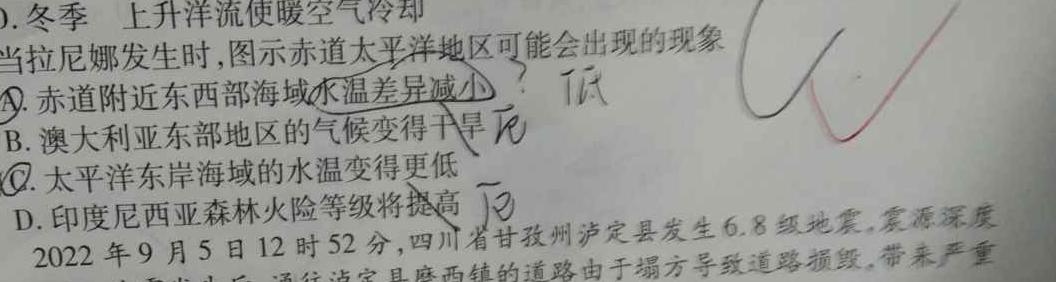 D.冬季 上升洋流使暖空气冷却
当拉尼娜发生时,图示赤道太平洋地区可能会出现的现象
A.赤道附近东西部海域水温差异减小 ? 低
B.澳大利亚东部地区的气候变得干旱
C.太平洋东岸海域的水温变得更低
D.印度尼西亚森林火险等级将提高
2022年9月5日12时52分,四川省甘孜州泸定县发生6.8级地震。震源深度
通往泸定县磨西镇的道路由于塌方导致道路损毁。带来严重